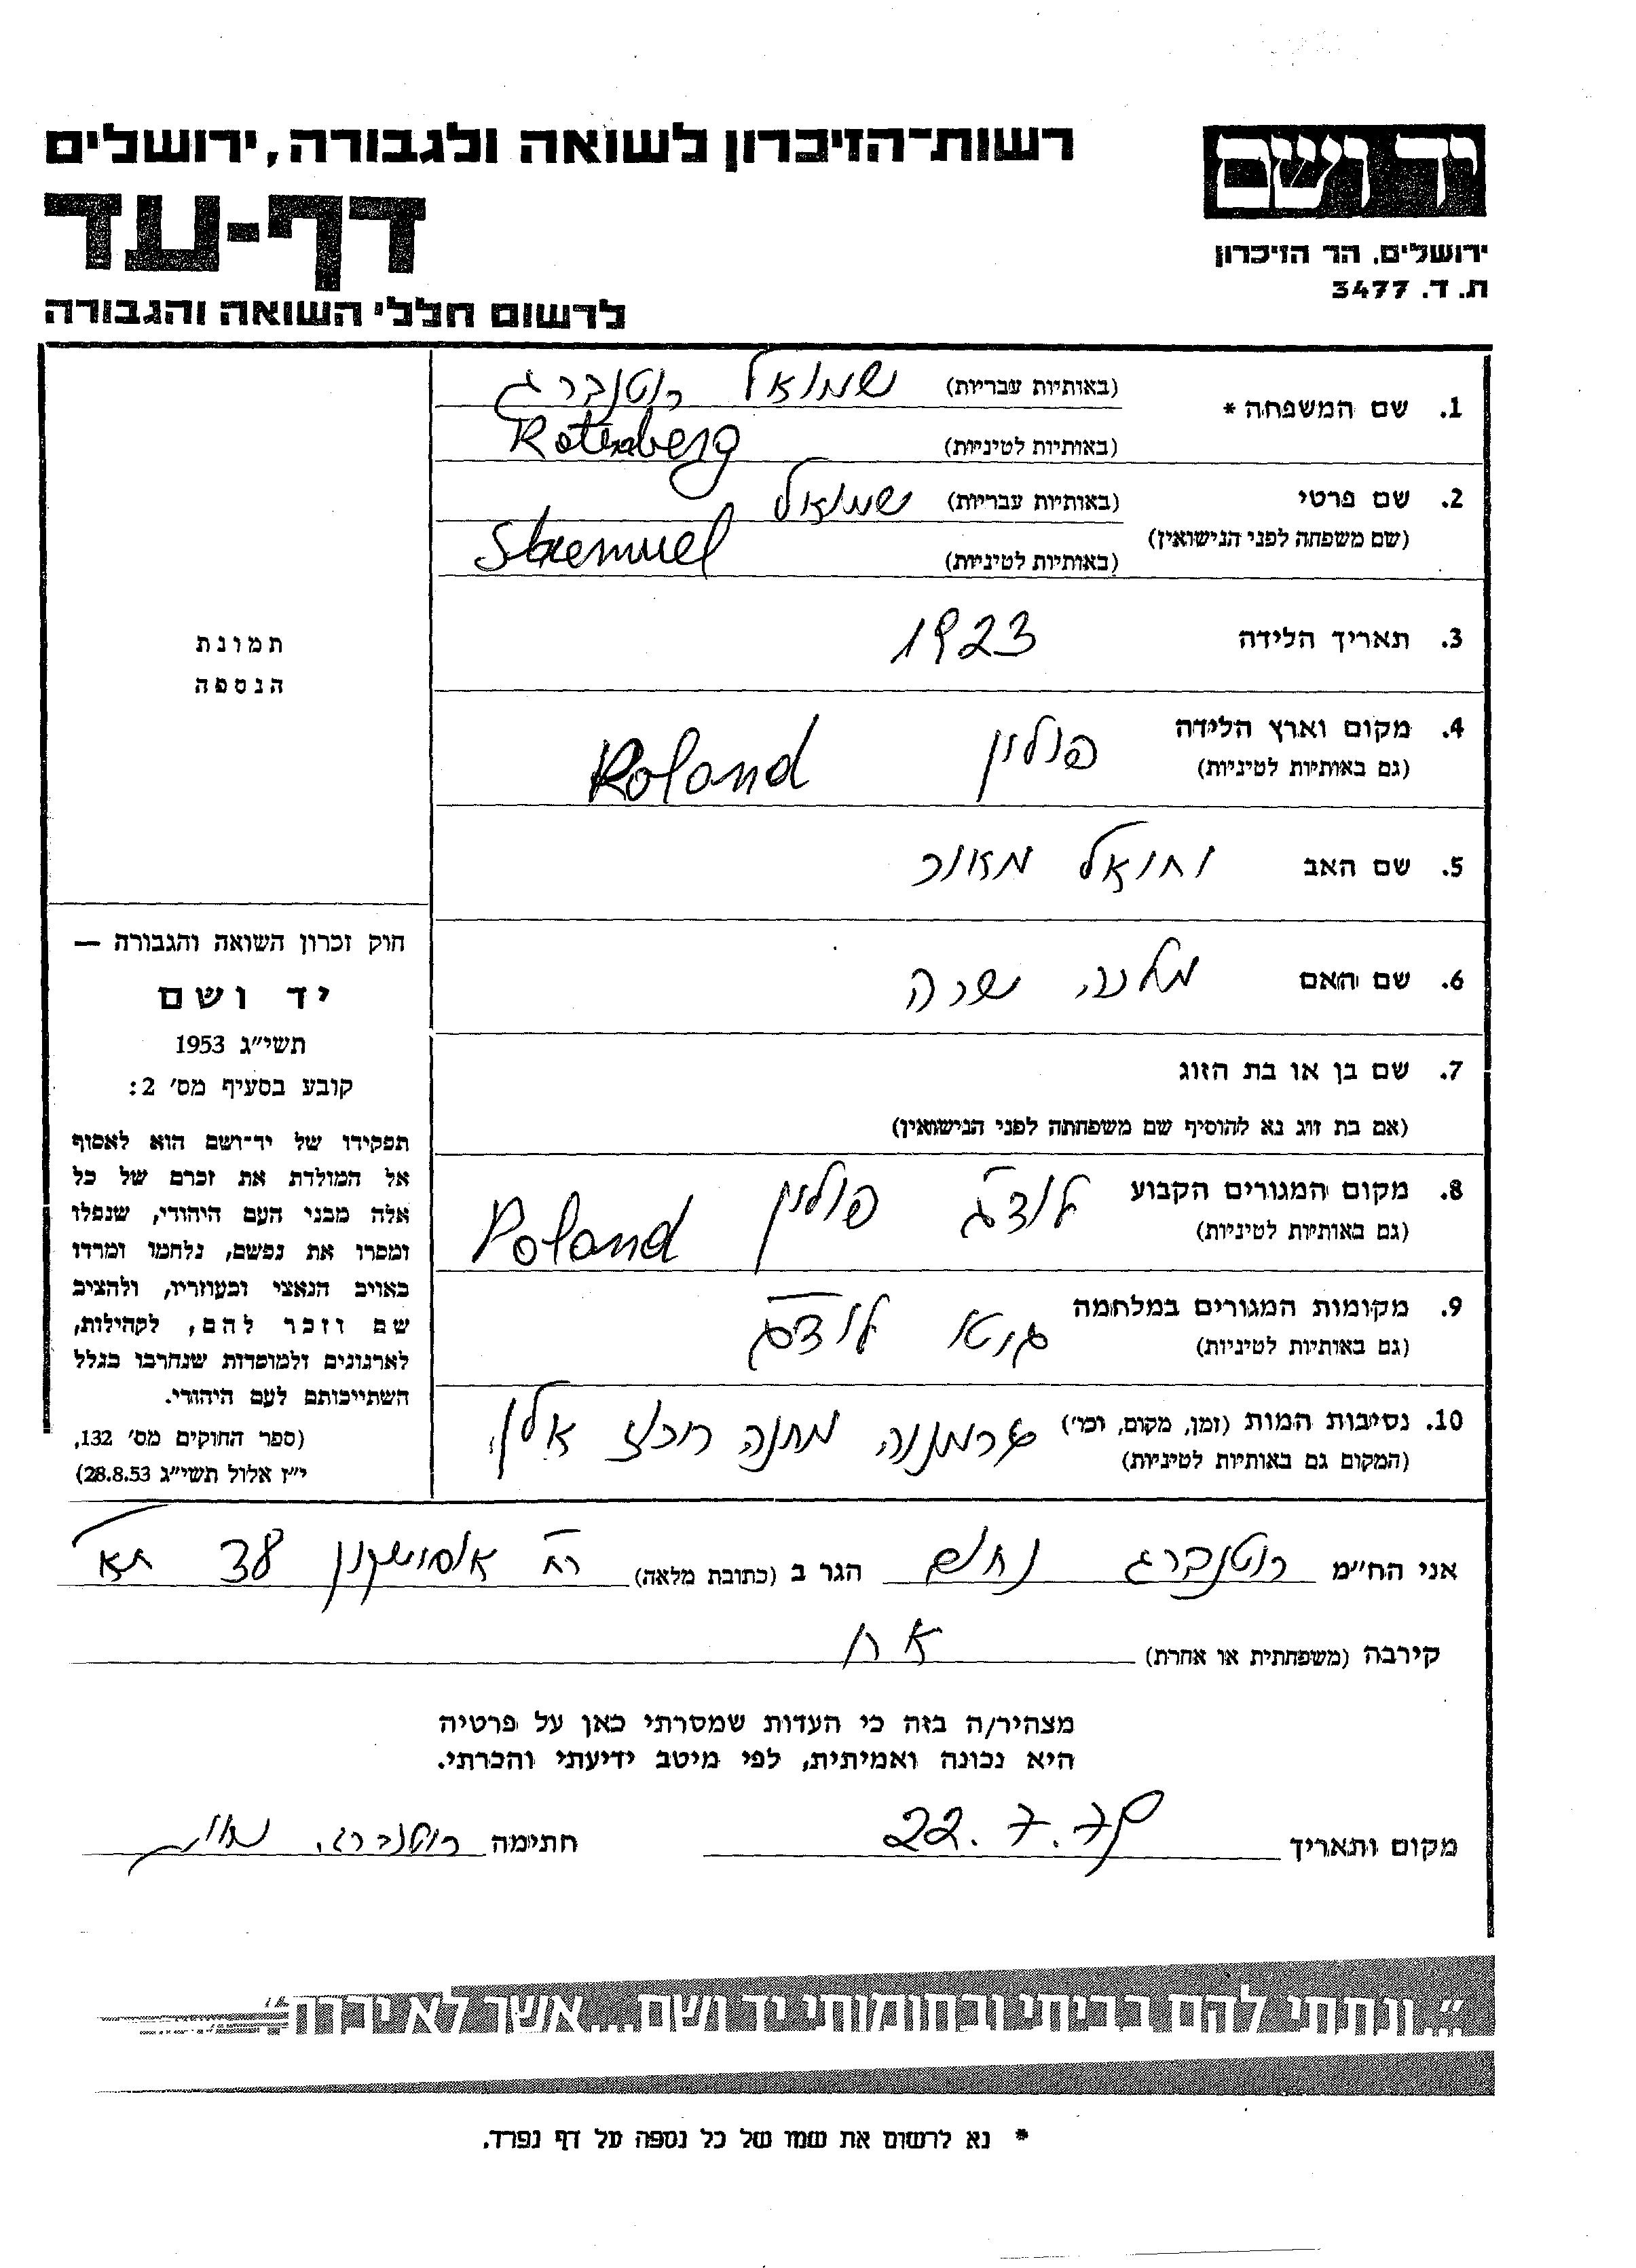 רשות־הזיכרון לשואה ולגבורה, ירושלים
יד ושם
דף-עד
ירושלים, הר הזיכרון
ת. ד. 3477
לרשום חללי השואה והגבורה
1. שם המשפחה * (באותיות עבריות) שמואל רוטנברג
(באותיות לטיניות) Rotenberg
2. שם פרטי (באותיות עבריות) שמואל
(שם משפחה לפני הנישואין)
(באותיות לטיניות) Shemuel
3. תאריך הלידה 1923
4. מקום וארץ הלידה פולין Poland
(גם באותיות לטיניות)
5. שם האב
6. שם האם שרה
7. שם בן או בת הזוג
(אם בת זוג נא להוסיף שם משפחתה לפני הנישואין)
8. מקום המגורים הקבוע לודג פולין Poland
(גם באותיות לטיניות)
9. מקומות המגורים במלחמה גיטו לודג
(גם באותיות לטיניות)
10. נסיבות המות (זמן, מקום, וכו') מחנה רכוז
(המקום גם באותיות לטיניות)
תמונת
הנספה
חוק זכרון השואה והגבורה —
יד ושם
תשי״ג 1953
קובע בסעיף מס׳ 2:
תפקידו של יד־ושם הוא לאסוף
אל המולדת את זכרם של כל
אלה מבני העם היהודי, שנפלו
ומסרו את נפשם, נלחמו ומרדו
באויב הנאצי ובעוזריו, ולהציב
שם וזכר להם, לקהילות,
לארגונים ולמוסדות שנחרבו בגלל
השתייכותם לעם היהודי.
(ספר החוקים מס׳ 132,
י״ז אלול תשי״ג 28.8.53)
אני הח״מ רוטנברג נחום הגר ב (כתובת מלאה) רח אוסישקין 38 תא
קירבה (משפחתית או אחרת) אח
מצהיר/ה בזה כי העדות שמסרתי כאן על פרטיה
היא נכונה ואמיתית, לפי מיטב ידיעתי והכרתי.
מקום ותאריך 22.7.79 חתימה רוטנברג
״...ונתתי להם בביתי ובחומותי יד ושם...אשר לא יכרת.״
* נא לרשום את שמו של כל נספה על דף נפרד.